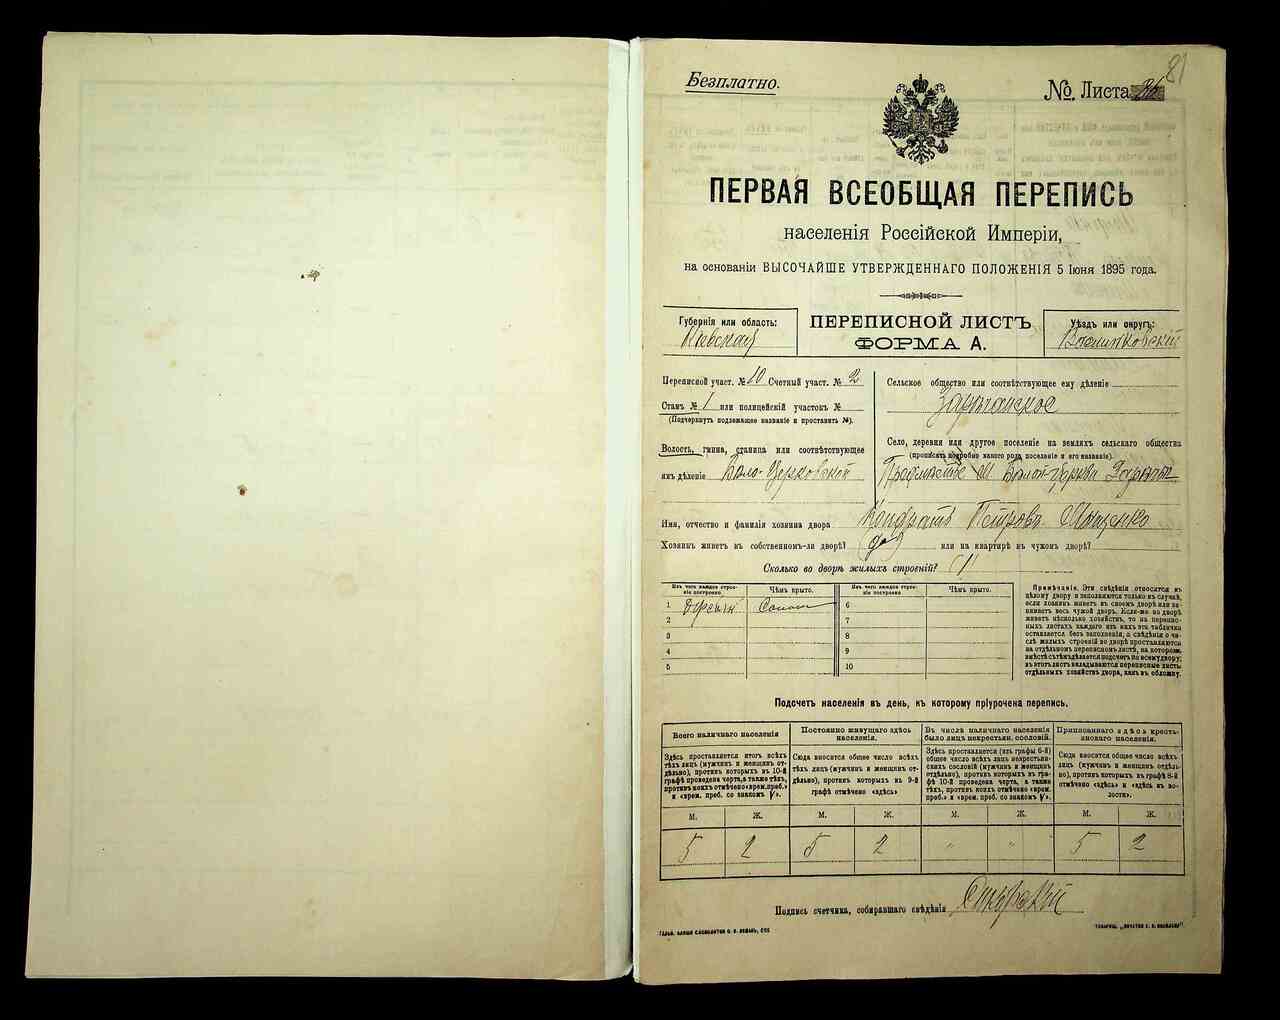 81
Безплатно.
№. Листа
ПЕРВАЯ ВСЕОБЩАЯ ПЕРЕПИСЬ
населенія Россійской Имперіи,
на основаніи ВЫСОЧАЙШЕ УТВЕРЖДЕННАГО ПОЛОЖЕНІЯ 5 Іюня 1895 года.
Губернія или область:
Кіевская
ПЕРЕПИСНОЙ ЛИСТЪ
ФОРМА А.
Уѣздъ или округъ:
Васильковскій
Переписной участ. № 10 Счетный участ. № 2
Станъ № 1 или полицейскій участокъ №
(Подчеркнуть подлежащее названіе и проставить №).
Волость, гмина, станица или соотвѣтствующее
имъ дѣленіе Бѣло-Церковской
Сельское общество или соотвѣтствующее ему дѣленіе
Зарѣчанское
Село, деревня или другое поселеніе на земляхъ сельскаго общества
(прописать подробно какого рода поселеніе и его названіе).
Предмѣстье м. Бѣлой-Церкви
Имя, отчество и фамилія хозяина двора Кондратъ Петровъ
Хозяинъ живетъ въ собственномъ-ли дворѣ? да или на квартирѣ въ чужомъ дворѣ?
Сколько во дворѣ жилыхъ строеній? 1
Изъ чего каждое строеніе построено. Чѣмъ крыто. Изъ чего каждое строеніе построено. Чѣмъ крыто.
1 6
2 7
3 8
4 9
5 10
Примѣчаніе. Эти свѣдѣнія относятся къ
цѣлому двору и заполняются только въ случаѣ,
если хозяинъ живетъ въ своемъ дворѣ или занимаетъ весь чужой дворъ. Если-же во дворѣ
живетъ нѣсколько хозяйствъ, то на переписныхъ листахъ каждаго изъ нихъ эта табличка
оставляется безъ заполненія, а свѣдѣнія о числѣ жилыхъ строеній во дворѣ проставляются
на отдѣльномъ переписномъ листѣ, на которомъ
вмѣстѣ съ тѣмъ дѣлается подсчетъ по всему двору;
въ этотъ листъ вкладываются переписные листы
отдѣльныхъ хозяйствъ двора, какъ въ обложку.
Подсчетъ населенія въ день, къ которому пріурочена перепись.
Всего наличнаго населенія
Здѣсь проставляется итогъ всѣхъ
лицъ (мужчинъ и женщинъ отдѣльно), противъ которыхъ въ 10-й
графѣ проведена черта, а также тѣхъ,
противъ коихъ отмѣчено «врем. преб.»
и «врем. преб. со знакомъ V».
Постоянно живущаго здѣсь
населенія.
Сюда вносится общее число всѣхъ
тѣхъ лицъ (мужчинъ и женщинъ отдѣльно), противъ которыхъ въ 9-й
графѣ отмѣчено «здѣсь»
Въ числѣ наличнаго населенія
было лицъ некрестьян. сословій.
Здѣсь проставляется (изъ графы 6-й)
общее число всѣхъ лицъ некрестьянскихъ сословій (мужчинъ и женщинъ
отдѣльно), противъ которыхъ въ графѣ 10-й проведена черта, а также
тѣхъ, противъ коихъ отмѣчено «врем.
преб.» и «врем. преб. со знакомъ V».
Приписаннаго здѣсь крестьянскаго населенія.
Сюда вносится общее число всѣхъ
лицъ (мужчинъ и женщинъ отдѣльно), противъ которыхъ въ графѣ 8-й
отмѣчено «здѣсь» и «здѣсь въ волости».
М. Ж. М. Ж. М. Ж. М. Ж.
5 2 5 2 " " 5 2
Подпись счетчика, собиравшаго свѣдѣнія